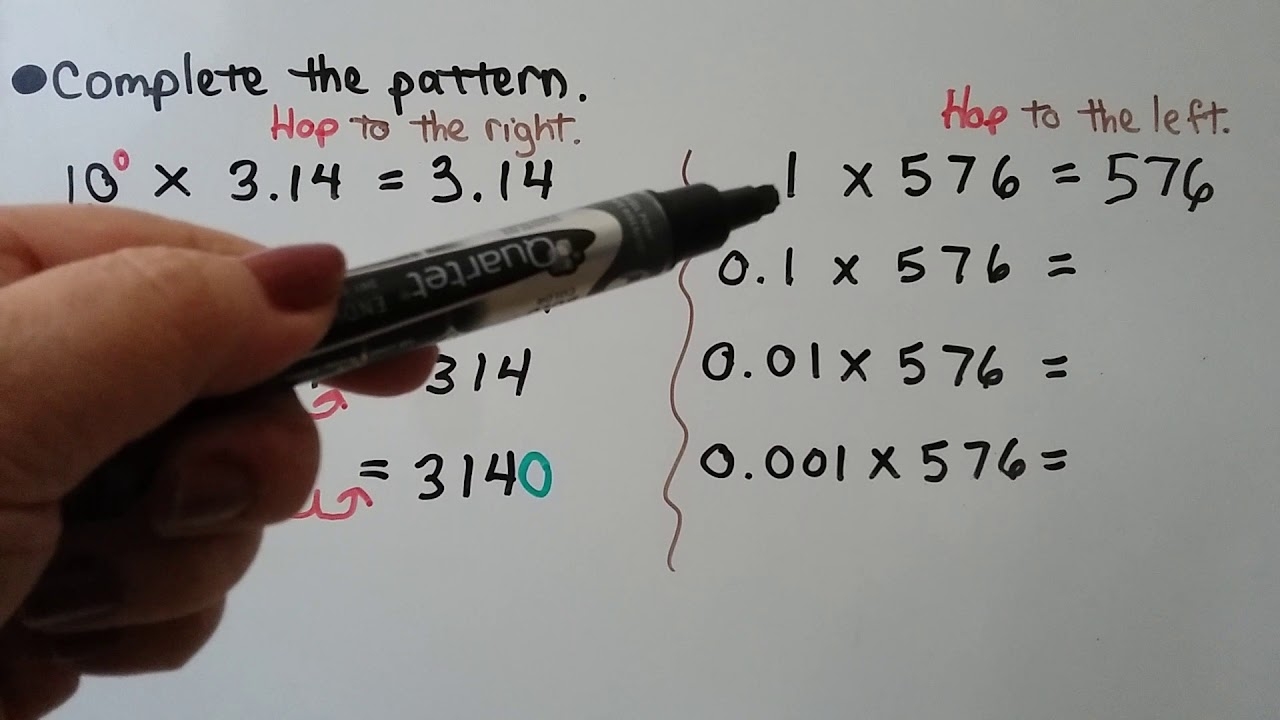 ●Complete the pattern.
Hop to the right.
10⁰ × 3.14 = 3.14
314
= 3140
Hop to the left.
1 × 576 = 576
0.1 × 576 =
0.01 × 576 =
0.001 × 576 =
Quartet